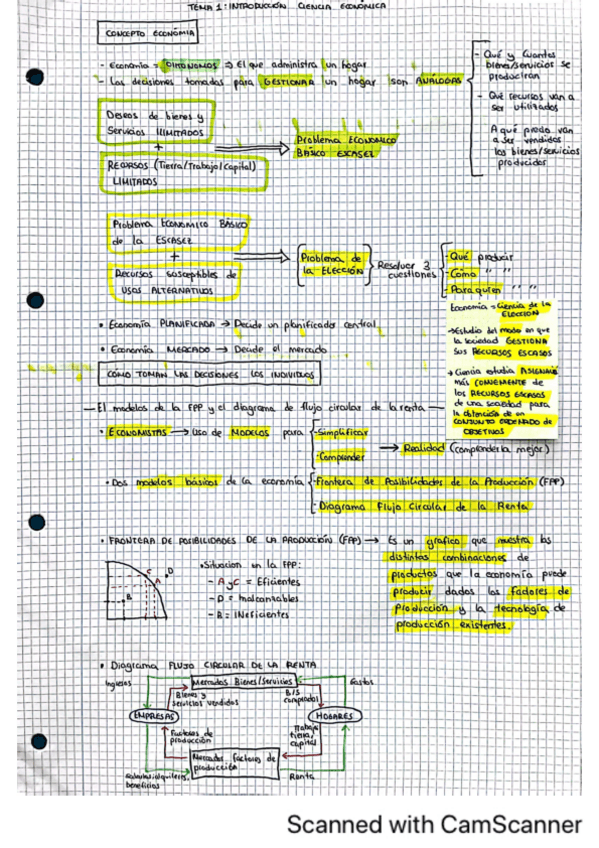 TEMA 1: INTRODUCCIÓN CIENCIA ECONÓMICA
CONCEPTO ECONOMÍA
- Economía = OIKONOMOS ⇒ El que administra un hogar
- Las decisiones tomadas para GESTIONAR un hogar son ANÁLOGAS
- Qué y cuantos
bienes/servicios se
produciran
- Qué recursos van a
ser utilizados
A qué precio van
a ser vendidos
los bienes/servicios
producidos
Deseos de bienes y
Servicios ILIMITADOS
+
RECURSOS (Tierra/Trabajo/Capital)
LIMITADOS
Problema ECONOMICO
BÁSICO ESCASEZ
Problema ECONOMICO BÁSICO
de la ESCASEZ
+
Recursos susceptibles de
USOS ALTERNATIVOS
Problema de
la ELECCIÓN
Resolver 3
cuestiones
- Qué producir
- Cómo " "
- Para quien " "
• Economía PLANIFICADA → Decide un planificador central
• Economía MERCADO → Decide el mercado
Economía = Ciencia de la
ELECCION
→ Estudio del modo en que
la sociedad GESTIONA
sus RECURSOS ESCASOS
→ Ciencia estudia ASIGNAR
más CONVENIENTE de
los RECURSOS ESCASOS
de una sociedad para
la obtención de un
CONJUNTO ORDENADO de
OBJETIVOS
COMO TOMAN LAS DECISIONES LOS INDIVIDUOS
— El modelos de la FPP y el diagrama de flujo circular de la renta —
• ECONOMISTAS → Uso de MODELOS para
- Simplificar
- Comprender
→ Realidad (comprenderla mejor)
• Dos modelos básicos de la economía
- Frontera de Posibilidades de la Producción (FPP)
- Diagrama Flujo Circular de la Renta
• FRONTERA DE POSIBILIDADES DE LA PRODUCCIÓN (FPP) → Es un gráfico que muestra las
distintas combinaciones de
productos que la economía puede
producir dados los factores de
Producción y la tecnología de
producción existentes.
C
D
A
B
• Situacion en la FPP:
- A y C = Eficientes
- D = Inalcanzables
- B = INeficientes
• Diagrama FLUJO CIRCULAR DE LA RENTA
Ingresos
Mercados Bienes/Servicios
Gastos
Bienes y
servicios vendidos
B/S
comprados
EMPRESAS
HOGARES
Factores de
producción
Trabajo,
tierra,
capital
Mercados factores de
producción
Salarios, alquileres,
beneficios
Renta
Scanned with CamScanner